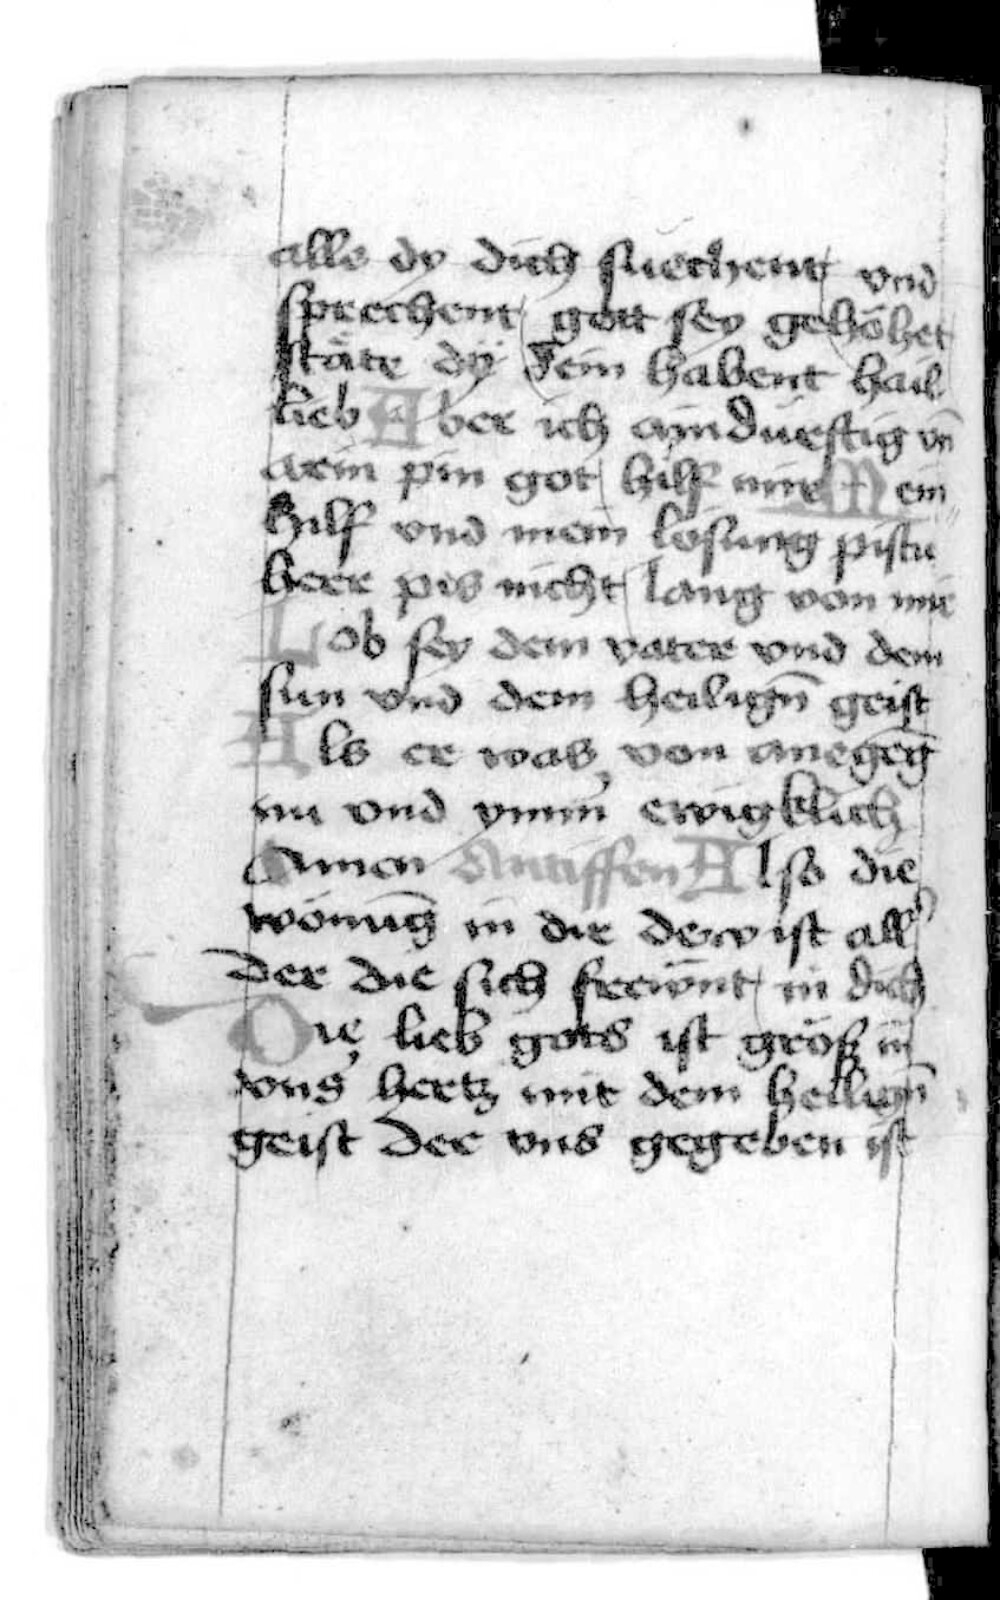 alle dy dich suechent vnd
sprechent gott sey gehöhet
stäte dÿ dein habent hail
lieb Aber ich ain dürftig vn̄
arm pin got hilf mir Mein
hilf vnd mein lösung pistu
herr pis nicht lang von mir
Lob sey dem vater vnd dem
sun vnd dem heilign̄ geist
Als er was von anegeḡ
nu vnd ymm̄ ewigklich
Amen Antiffen Also die
wönūg in dir dew ist all
der die sich frewnt in dich
Die lieb gots ist größ in
vns' hertz mit dem heilign̄
geist der vns gegeben ist